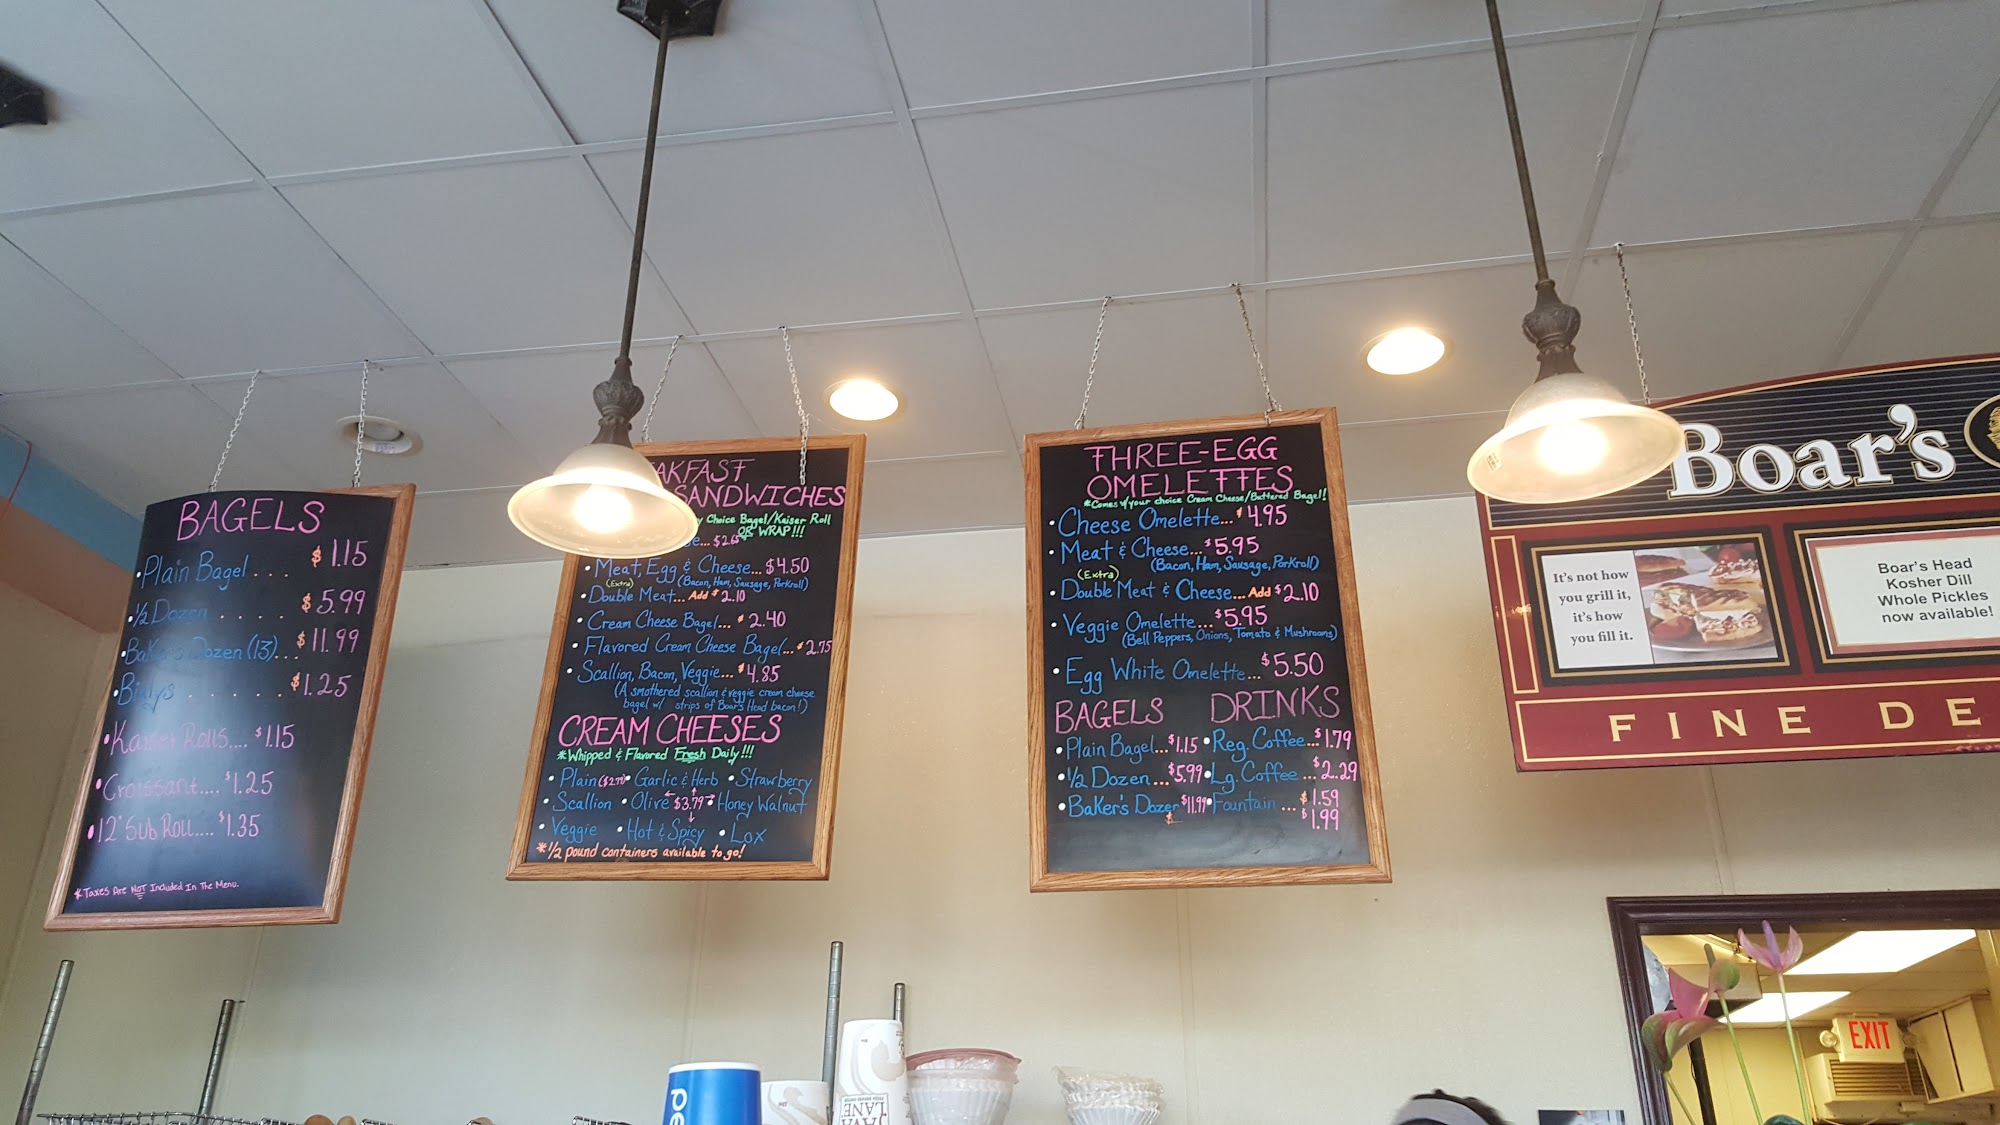 BAGELS
•Plain Bagel... $1.15
•½ Dozen .... $5.99
•Baker's Dozen (13)... $11.99
•Bialys ...... $1.25
•Kaiser Rolls.... $1.15
•Croissant.... $1.25
•12" Sub Roll.... $1.35
*Taxes Are NOT Included In The Menu.
AKFAST
SANDWICHES
Choice Bagel/Kaiser Roll
OR WRAP!!!
$2.65
•Meat, Egg & Cheese... $4.50
(Extra) (Bacon, Ham, Sausage, Porkroll)
•Double Meat... Add $2.10
•Cream Cheese Bagel... $2.40
•Flavored Cream Cheese Bagel... $2.75
•Scallion, Bacon, Veggie... $4.85
(A smothered scallion & veggie cream cheese
bagel w/ strips of Boar's Head bacon!)
CREAM CHEESES
*Whipped & Flavored Fresh Daily!!!
•Plain ($2.70) •Garlic & Herb •Strawberry
•Scallion •Olive ←$3.79→ •Honey Walnut
•Veggie •Hot & Spicy •Lox
*½ pound containers available to go!
THREE-EGG
OMELETTES
*Comes w/your choice Cream Cheese/Buttered Bagel!
•Cheese Omelette... $4.95
•Meat & Cheese... $5.95
(Bacon, Ham, Sausage, Porkroll)
(Extra)
•Double Meat & Cheese... Add $2.10
•Veggie Omelette... $5.95
(Bell Peppers, Onions, Tomato & Mushrooms)
•Egg White Omelette... $5.50
BAGELS DRINKS
•Plain Bagel... $1.15 •Reg. Coffee... $1.79
•½ Dozen ... $5.99 •Lg. Coffee ... $2.29
•Baker's Dozen $11.99 •Fountain ... $1.59
$1.99
Boar's
It's not how
you grill it,
it's how
you fill it.
Boar's Head
Kosher Dill
Whole Pickles
now available!
FINE DE
EXIT
pe
JAVA
LANE